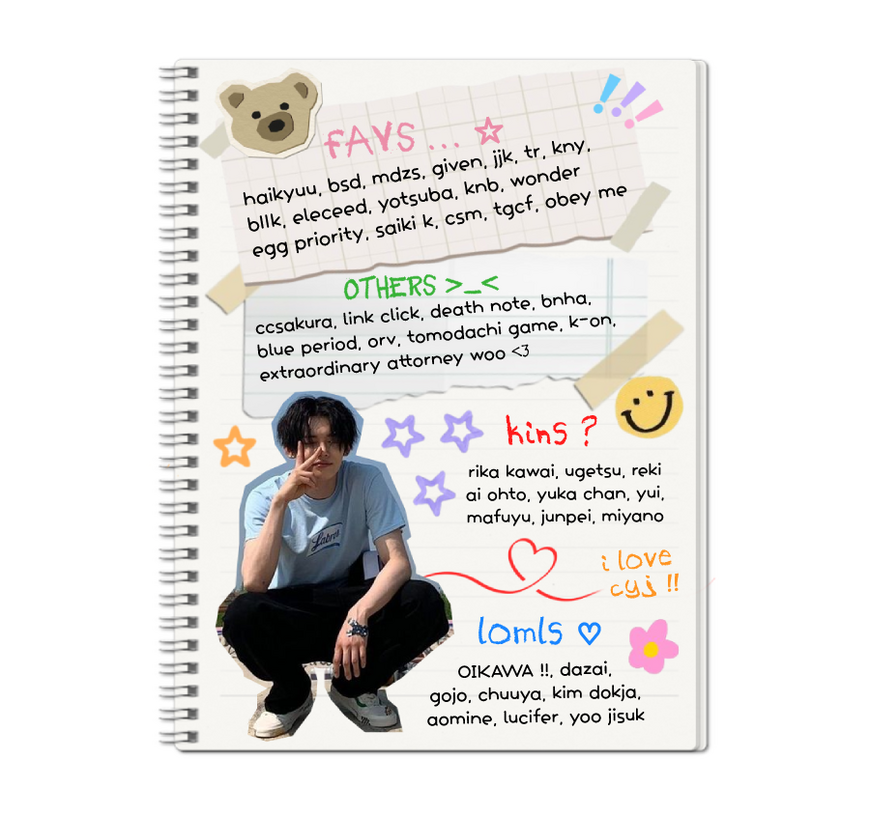 FAVS ...
haikyuu, bsd, mdzs, given, jjk, tr, kny,
bllk, eleceed, yotsuba, knb, wonder
egg priority, saiki k, csm, tgcf, obey me
OTHERS >_<
ccsakura, link click, death note, bnha,
blue period, orv, tomodachi game, k-on,
extraordinary attorney woo <3
kins ?
rika kawai, ugetsu, reki
ai ohto, yuka chan, yui,
mafuyu, junpei, miyano
i love
cyj !!
lomls ♡
OIKAWA !!, dazai,
gojo, chuuya, kim dokja,
aomine, lucifer, yoo jisuk